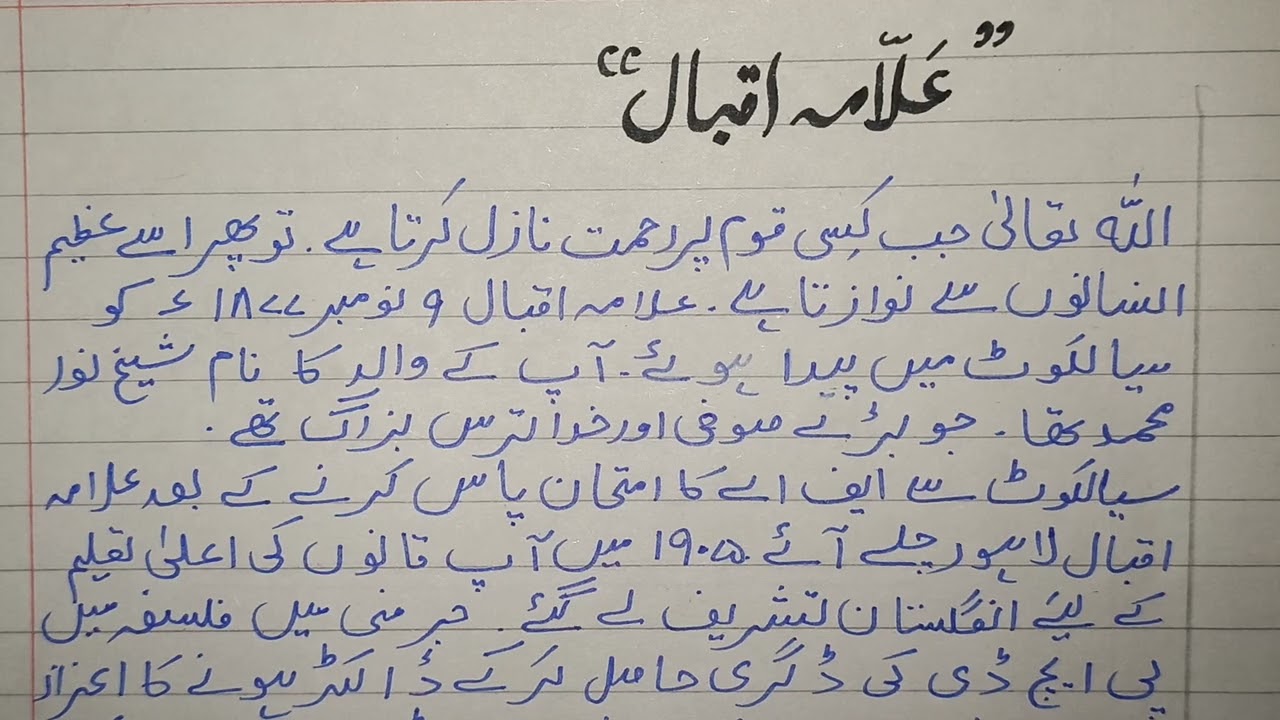 ”علّامہ اقبال“
اللہ تعالیٰ جب کسی قوم پر رحمت نازل کرتا ہے۔ تو پھر اسے عظیم
انسانوں سے نوازتا ہے۔ علامہ اقبال ۹ نومبر ۱۸۷۷ء کو
سیالکوٹ میں پیدا ہوئے۔ آپ کے والد کا نام شیخ نور
محمد تھا۔ جو بڑے صوفی اور خدا ترس بزرگ تھے۔
سیالکوٹ سے ایف اے کا امتحان پاس کرنے کے بعد علامہ
اقبال لاہور چلے آئے ۱۹۰۵ میں آپ قانون کی اعلیٰ تعلیم
کے لیئے انگلستان تشریف لے گئے۔ جرمنی میں فلسفہ میں
پی ایچ ڈی کی ڈگری حاصل کرکے ڈاکٹر ہونے کا اعزاز